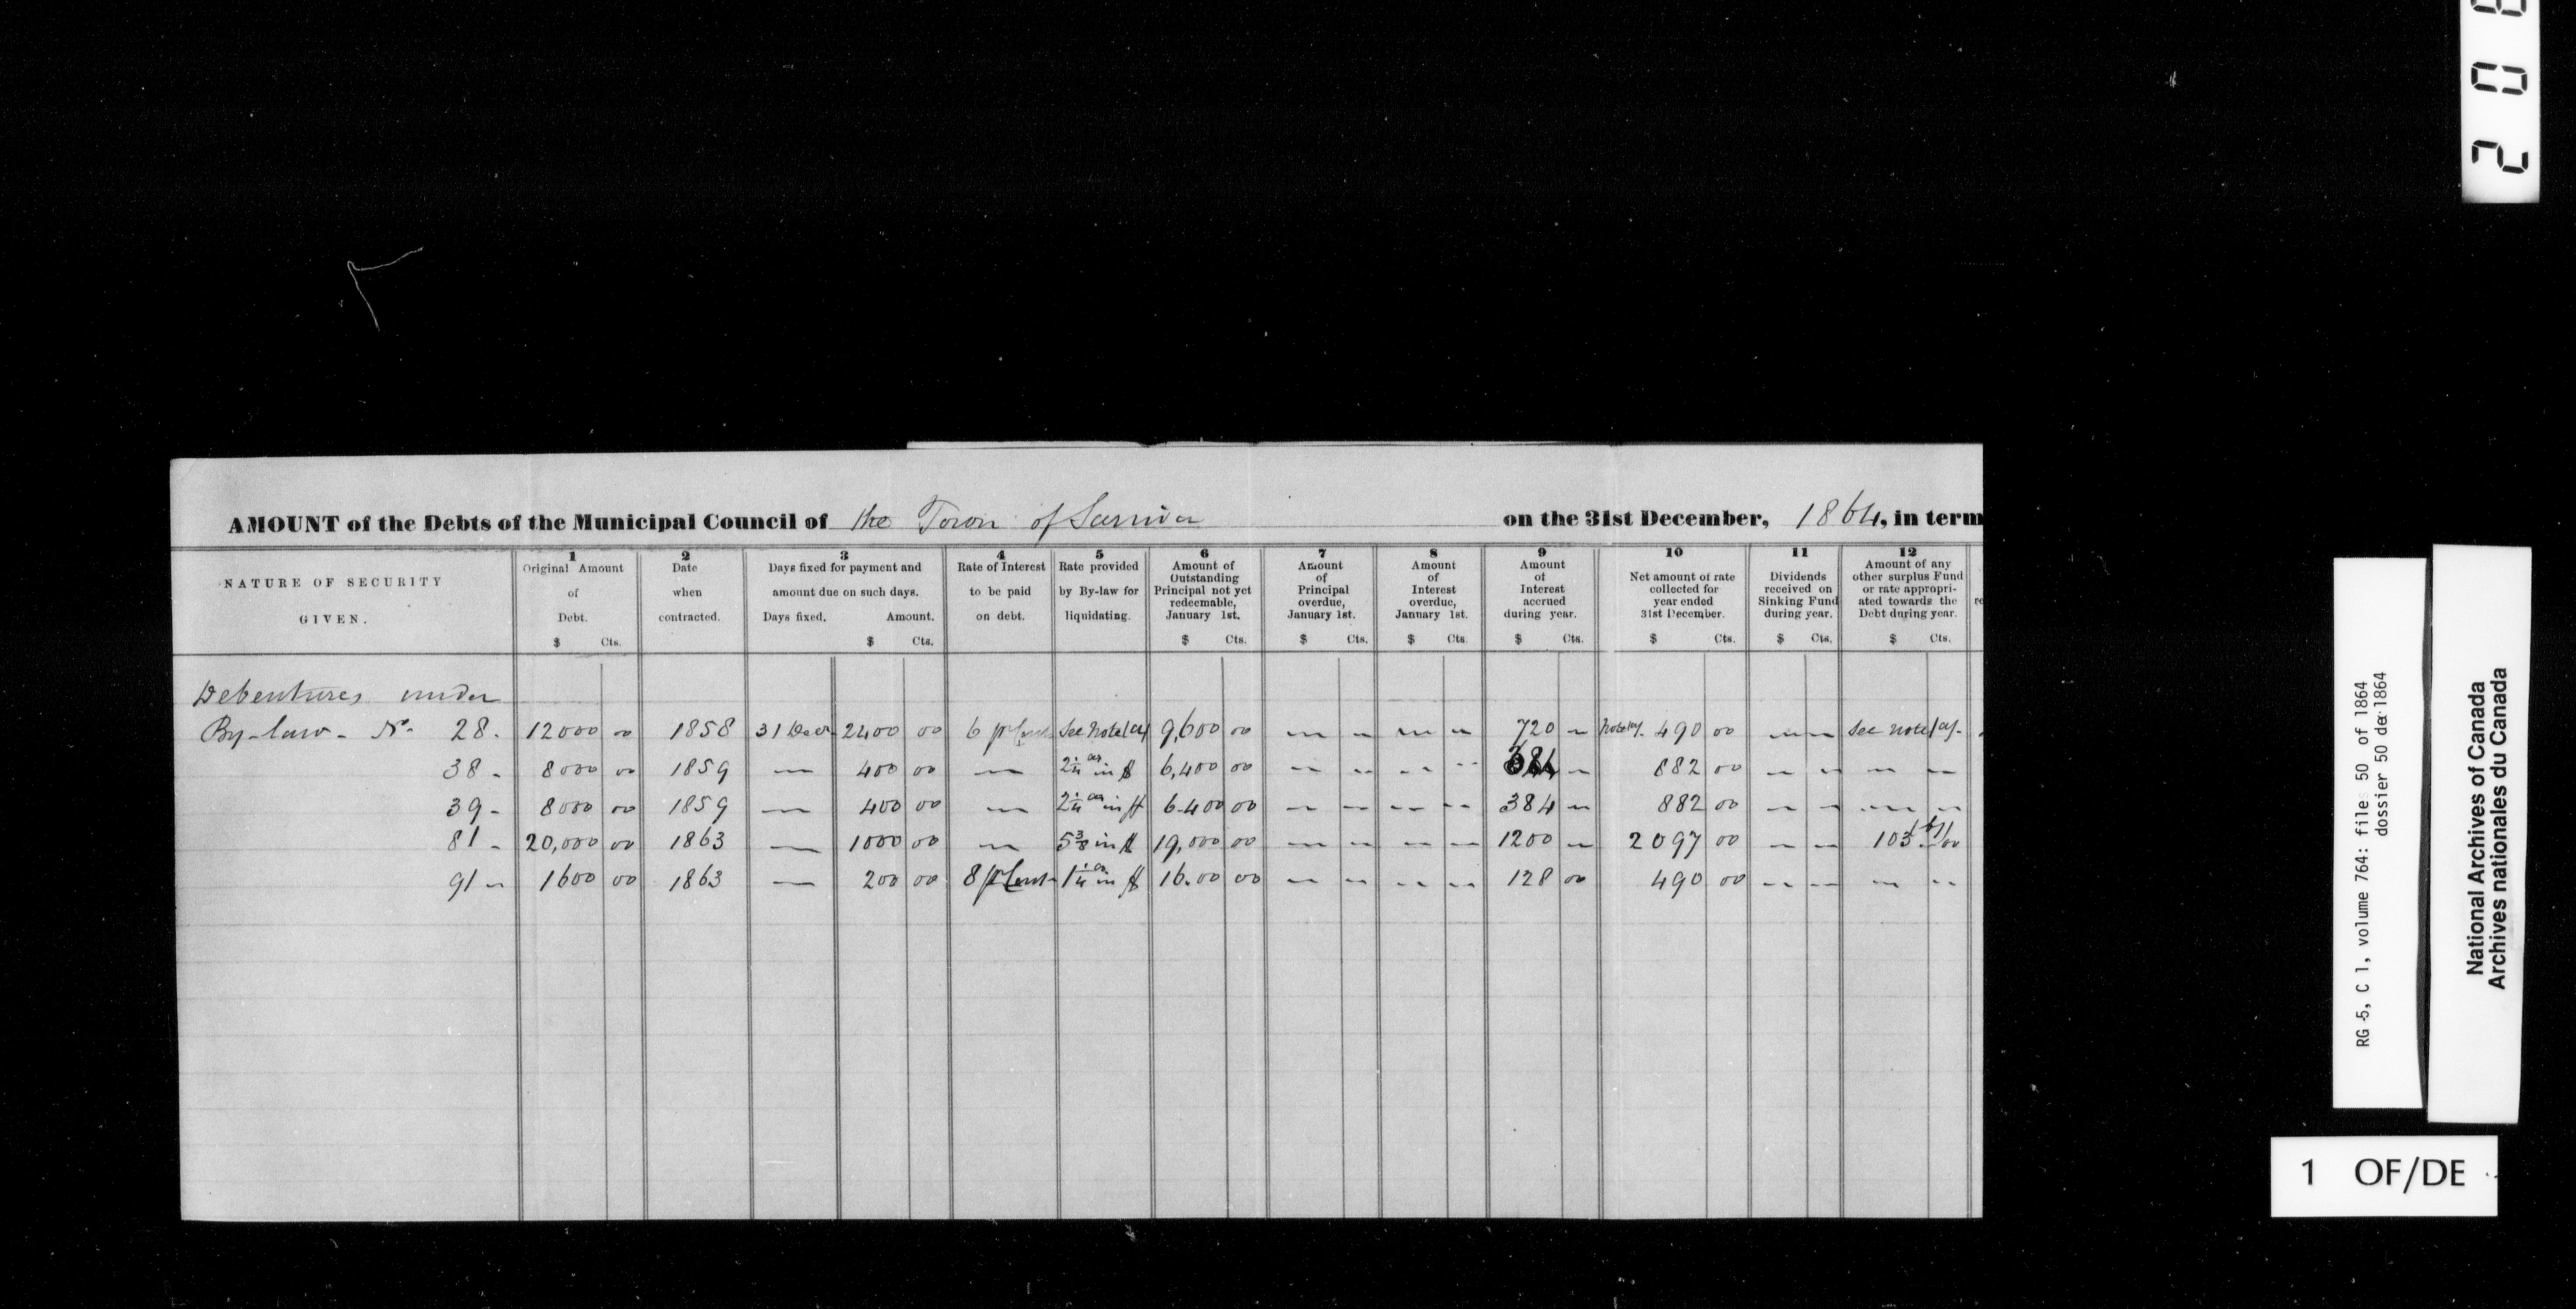 AMOUNT of the Debts of the Municipal Council of the Town of Sarnia on the 31st December, 1864, in term
NATURE OF SECURITY GIVEN.
1 Original Amount of Debt. $ Cts.
2 Date when contracted.
3 Days fixed for payment and amount due on such days. Days fixed. Amount. $ Cts.
4 Rate of Interest to be paid on debt.
5 Rate provided by By-law for liquidating.
6 Amount of Outstanding Principal not yet redeemable, January 1st. $ Cts.
7 Amount of Principal overdue, January 1st. $ Cts.
8 Amount of Interest overdue, January 1st. $ Cts.
9 Amount of Interest accrued during year. $ Cts.
10 Net amount of rate collected for year ended 31st December. $ Cts.
11 Dividends received on Sinking Fund during year. $ Cts.
12 Amount of any other surplus Fund or rate appropriated towards the Debt during year. $ Cts.
Debentures under
By-law - No. 28. 12000 00 1858 31 Decr 2400 00 6 pr Cent See note (a) 9,600 00 — — — — 720 — note (a). 490 00 — — See note (a).
38 - 8000 00 1859 — 400 00 — 2 1/4 in $ 6,400 00 — — — — 384 — 882 00 — — — —
39 - 8000 00 1859 — 400 00 — 2 1/4 in $ 6.400 00 — — — — 384 — 882 00 — — — —
81 - 20,000 00 1863 — 1000 00 — 5 3/8 in $ 19,000 00 — — — — 1200 — 2097 00 — — 103 (b) 00
91 - 1600 00 1863 — 200 00 8 pr Cent 1 1/4 in $ 16.00 00 — — — — 128 00 490 00 — — — —
2 0 8
RG 5, C 1, volume 764: files 50 of 1864
dossier 50 de 1864
National Archives of Canada
Archives nationales du Canada
1 OF/DE